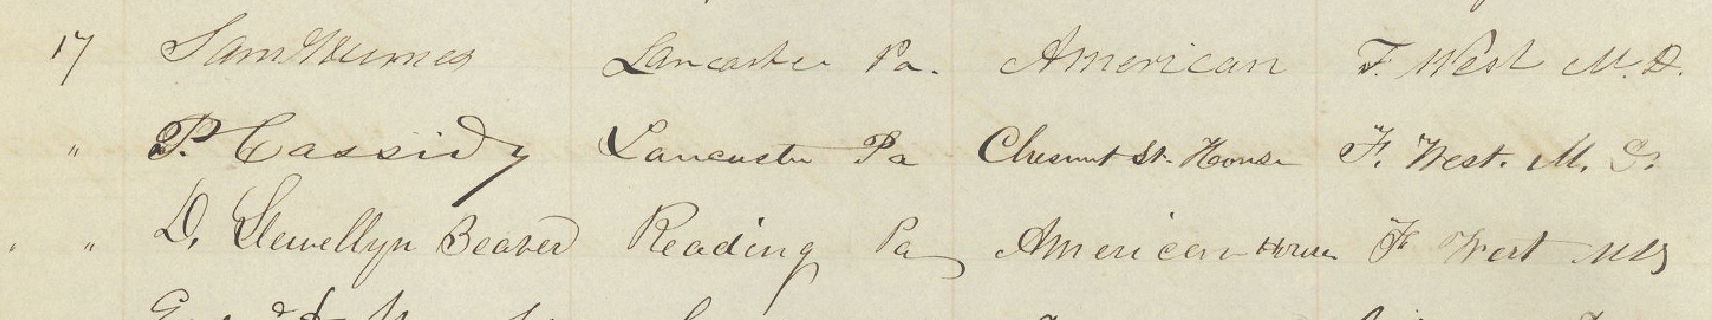 17 Sam Humes Lancaster Pa. American F. West M.D.
" P. Cassidy Lancaster Pa Chesnut St. House F. West. M. D.
" " D. Llewellyn Beaver Reading Pa American House F West MD